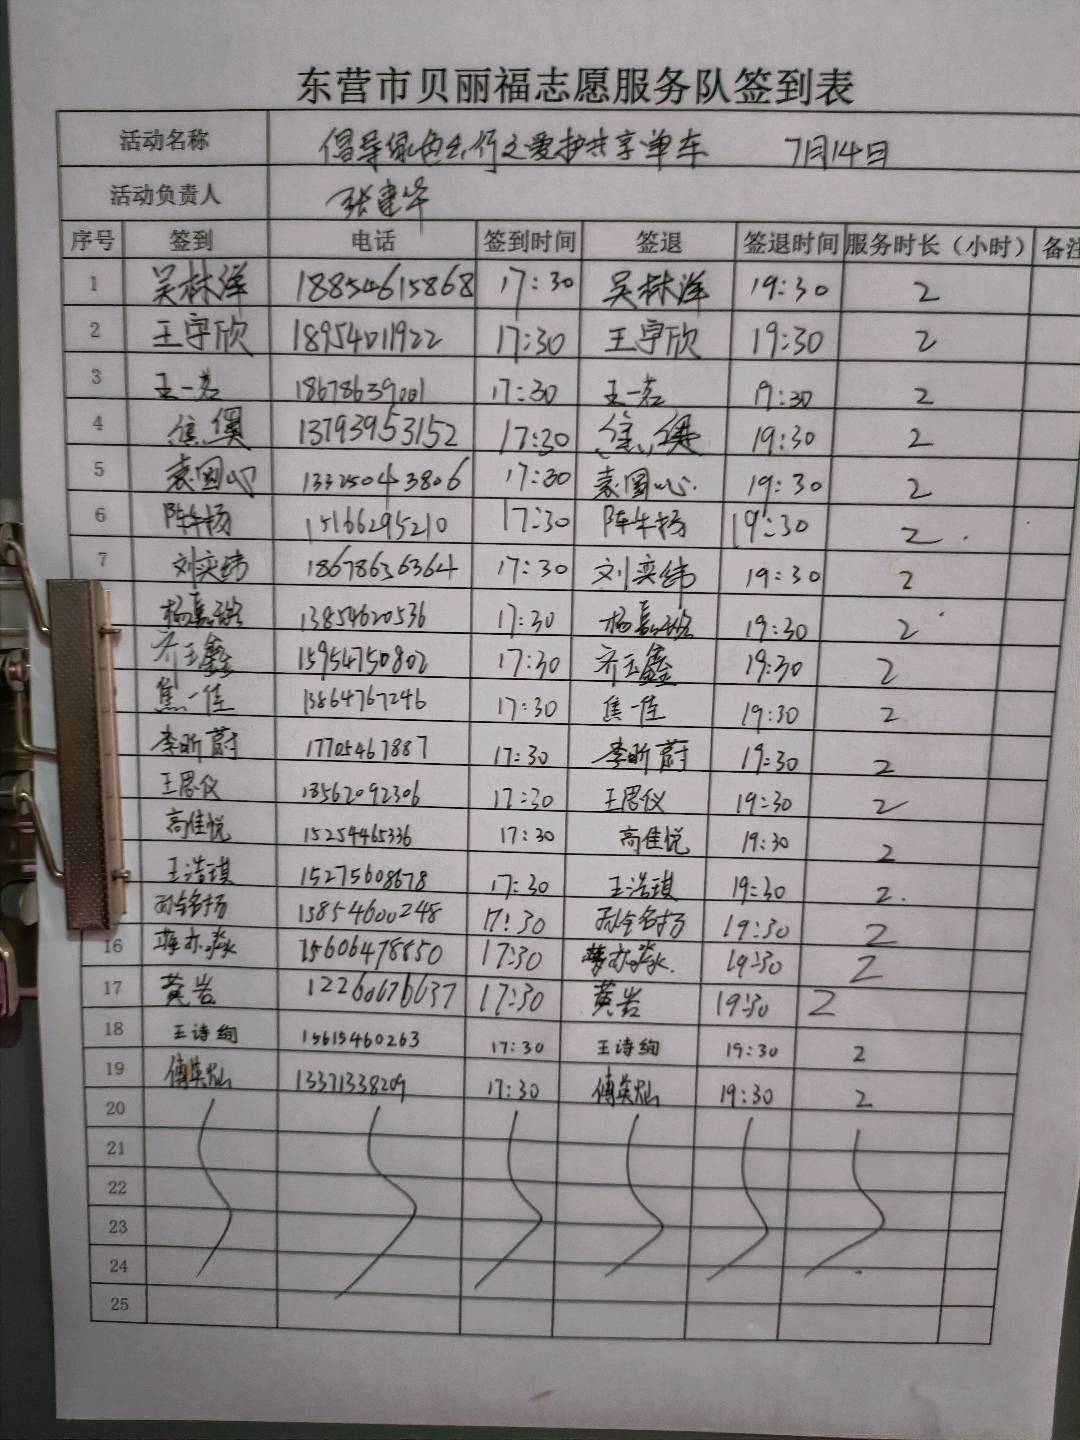 东营市贝丽福志愿服务队签到表
活动名称 倡导绿色出行之爱护共享单车 7月14日
活动负责人 张建华
序号 签到 电话 签到时间 签退 签退时间 服务时长（小时） 备注
1 吴林泽 18854615868 17:30 吴林泽 19:30 2
2 王宇欣 18954011922 17:30 王宇欣 19:30 2
3 王一茗 18678639001 17:30 王一茗 19:30 2
4 焦 13793953152 17:30 焦 19:30 2
5 袁圆心 13325043806 17:30 袁圆心 19:30 2
6 15166295210 17:30 19:30 2
7 刘奕纬 18678636364 17:30 刘奕纬 19:30 2
杨嘉 13854620536 17:30 杨嘉 19:30 2
齐玉鑫 15954750802 17:30 齐玉鑫 19:30 2
焦一佳 15864767246 17:30 焦一佳 19:30 2
李昕蔚 17705467887 17:30 李昕蔚 19:30 2
王思仪 13562092306 17:30 王思仪 19:30 2
高佳悦 15254465336 17:30 高佳悦 19:30 2
王浩琪 15275608678 17:30 王浩琪 19:30 2
15854600248 17:30 19:30 2
16 15606478850 17:30 19:30 2
17 黄岩 12260676637 17:30 黄岩 19:30 2
18 王诗绚 15615460263 17:30 王诗绚 19:30 2
19 傅英灿 13371338209 17:30 傅英灿 19:30 2
20
21
22
23
24
25